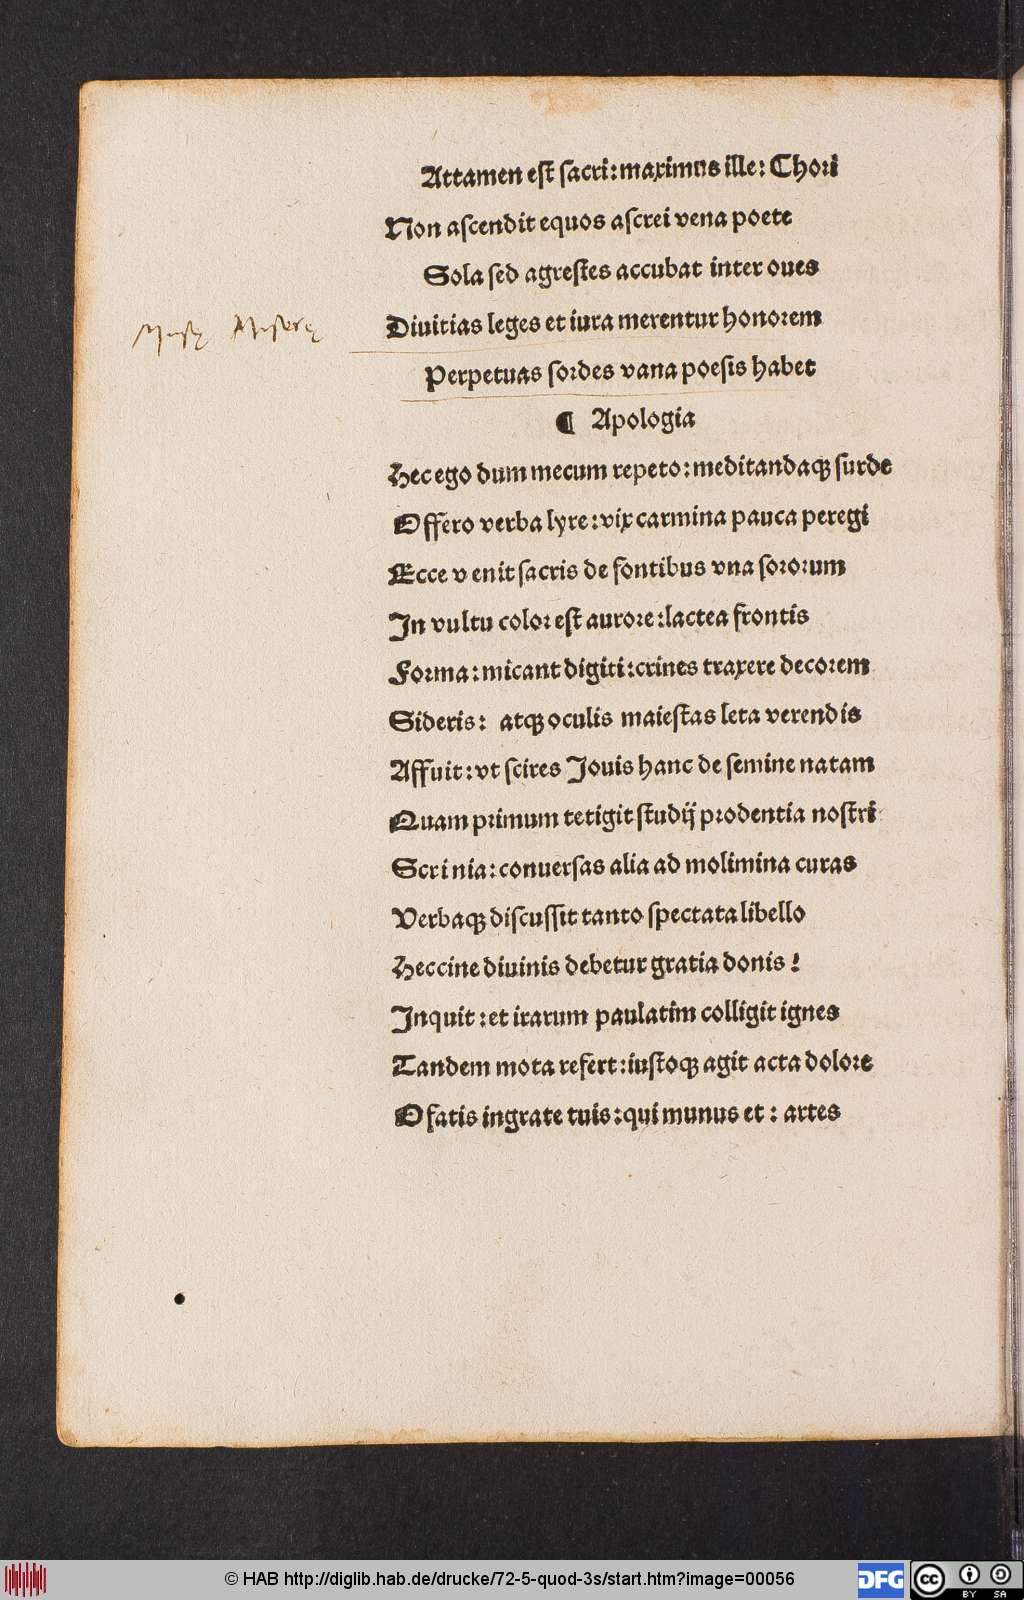 Attamen eſt ſacri: maximus ille: Chori
Non aſcendit equos aſcrei vena poete
Sola ſed agreſtes accubat inter oues
Muſę Miſerę
Diuitias leges et iura merentur honorem
Perpetuas ſordes vana poeſis habet
¶ Apologia
Hec ego dum mecum repeto: meditandaqꝫ ſurde
Offero verba lyre: vix carmina pauca peregi
Ecce v enit ſacris de fontibus vna ſororum
In vultu color eſt aurore: lactea frontis
Forma: micant digiti: crines traxere decorem
Sideris: atqꝫ oculis maieſtas leta verendis
Affuit: vt ſcires Jouis hanc de ſemine natam
Quam primum tetigit ſtudij prodentia noſtri
Scrinia: conuerſas alia ad molimina curas
Verbaqꝫ diſcuſſit tanto ſpectata libello
Heccine diuinis debetur gratia donis!
Inquit: et irarum paulatim colligit ignes
Tandem mota refert: iuſtoqꝫ agit acta dolore
O fatis ingrate tuis: qui munus et: artes
© HAB http://diglib.hab.de/drucke/72-5-quod-3s/start.htm?image=00056
DFG
cc
BY SA